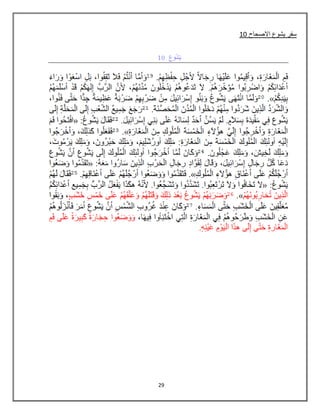 سفر يشوع الاصحاح 10
يَشُوعَ 10
فَمِ الْمَغَارَةِ، وَأَقِيمُوا عَلَيْهَا رِجَالاً لأَجْلِ حِفْظِهِمْ. 19 وَأَمَّا أَنْتُمْ فَلاَ تَقِفُوا، بَلِ اسْعَوْا وَرَاءَ
أَعْدَائِكُمْ وَاضْرِبُوا مُؤَخَّرَهُمْ. لاَ تَدَعُوهُمْ يَدْخُلُونَ مُدُنَهُمْ، لأَنَّ الرَّبَّ إِلهَكُمْ قَدْ أَسْلَمَهُمْ
بِيَدِكُمْ». 20 وَلَمَّا انْتَهَى يَشُوعُ وَبَنُو إِسْرَائِيلَ مِنْ ضَرْبِهِمْ ضَرْبَةً عَظِيمَةً جِدًّا حَتَّى فَنُوا،
وَالشُّرَّدُ الَّذِينَ شَرَدُوا مِنْهُمْ دَخَلُوا الْمُدُنَ الْمُحَصَّنَةَ. 21 رَجَعَ جَمِيعُ الشَّعْبِ إِلَى الْمَحَلَّةِ إِلَى
يَشُوعَ فِي مَقِّيدَةَ بِسَلاَمٍ. لَمْ يَسُنَّ أَحَدٌ لِسَانَهُ عَلَى بَنِي إِسْرَائِيلَ. 22 فَقَالَ يَشُوعُ: «افْتَحُوا فَمَ
الْمَغَارَةِ وَأَخْرِجُوا إِلَيَّ هؤُلاَءِ الْخَمْسَةَ الْمُلُوكِ مِنَ الْمَغَارَةِ». 23 فَفَعَلُوا كَذلِكَ، وَأَخْرَجُوا
إِلَيْهِ أُولئِكَ الْمُلُوكَ الْخَمْسَةَ مِنَ الْمَغَارَةِ: مَلِكَ أُورُشَلِيمَ، وَمَلِكَ حَبْرُونَ، وَمَلِكَ يَرْمُوتَ،
وَمَلِكَ لَخِيشَ، وَمَلِكَ عَجْلُونَ. 24 وَكَانَ لَمَّا أَخْرَجُوا أُولئِكَ الْمُلُوكَ إِلَى يَشُوعَ أَنَّ يَشُوعَ
دَعَا كُلَّ رِجَالِ إِسْرَائِيلَ، وَقَالَ لِقُوَّادِ رِجَالِ الْحَرْبِ الَّذِينَ سَارُوا مَعَهُ: «تَقَدَّمُوا وَضَعُوا
أَرْجُلَكُمْ عَلَى أَعْنَاقِ هؤُلاَءِ الْمُلُوكِ». فَتَقَدَّمُوا وَوَضَعُوا أَرْجُلَهُمْ عَلَى أَعْنَاقِهِمْ. 25 فَقَالَ لَهُمْ
يَشُوعُ: «لاَ تَخَافُوا وَلاَ تَرْتَعِبُوا. تَشَدَّدُوا وَتَشَجَّعُوا. لأَنَّهُ هكَذَا يَفْعَلُ الرَّبُّ بِجَمِيعِ أَعْدَائِكُمُ
الَّذِينَ تُحَارِبُونَهُمْ». 26 وَضَرَبَهُمْ يَشُوعُ بَعْدَ ذلِكَ وَقَتَلَهُمْ وَعَلَّقَهُمْ عَلَى خَمْسِ خَشَبٍ، وَبَقُوا
مُعَلَّقِينَ عَلَى الْخَشَبِ حَتَّى الْمَسَاءِ. 27 وَكَانَ عِنْدَ غُرُوبِ الشَّمْسِ أَنَّ يَشُوعَ أَمَرَ فَأَنْزَلُوهُمْ
عَنِ الْخَشَبِ وَطَرَحُوهُمْ فِي الْمَغَارَةِ الَّتِي اخْتَبَأُوا فِيهَا، وَوَضَعُوا حِجَارَةً كَبِيرَةً عَلَى فَمِ
الْمَغَارَةِ حَتَّى إِلَى هذَا الْيَوْمِ عَيْنِهِ.
29